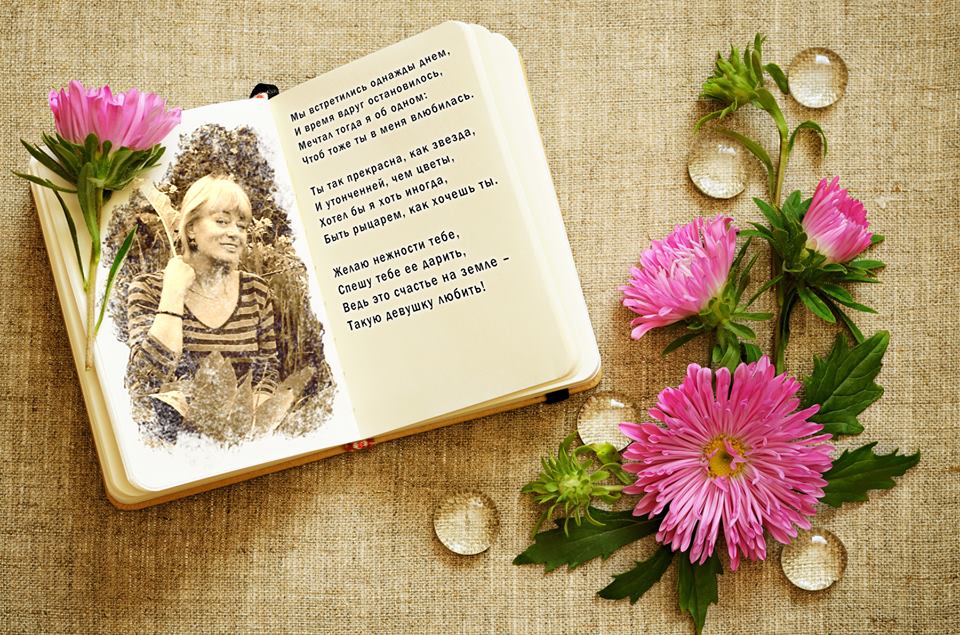 Мы встретились однажды днем,
И время вдруг остановилось,
Мечтал тогда я об одном:
Чтоб тоже ты в меня влюбилась.
Ты так прекрасна, как звезда,
И утонченней, чем цветы,
Хотел бы я хоть иногда,
Быть рыцарем, как хочешь ты.
Желаю нежности тебе,
Спешу тебе ее дарить,
Ведь это счастье на земле –
Такую девушку любить!